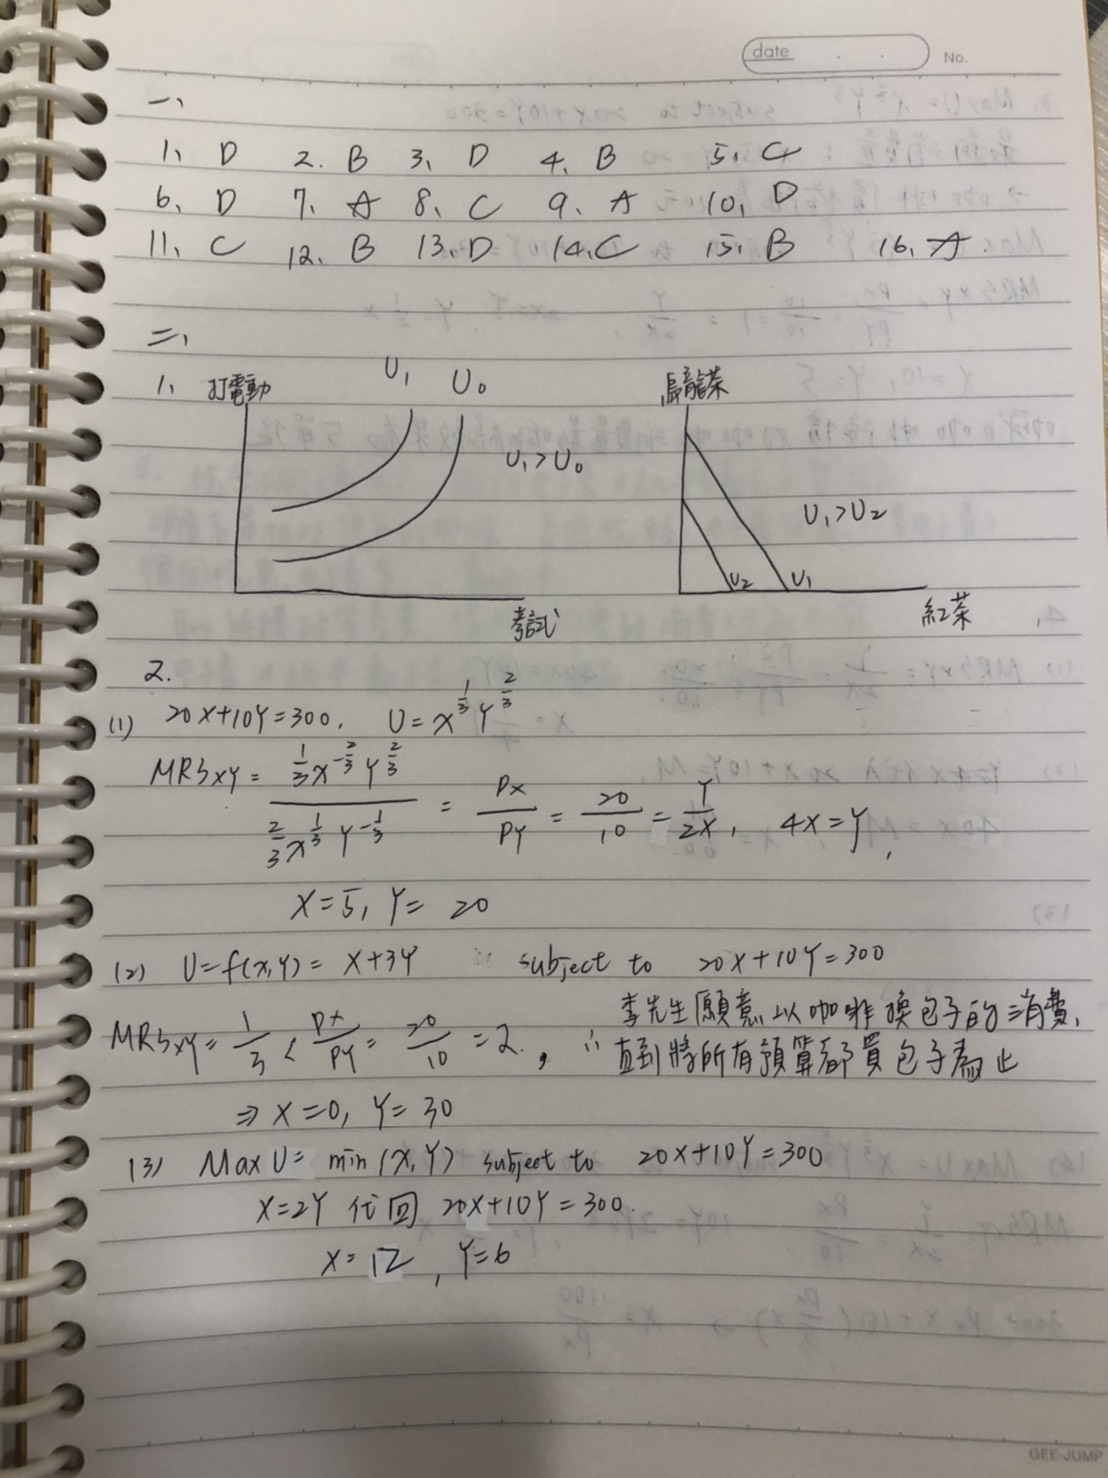 date . .
No.
一、
1、D 2. B 3、D 4、B 5、C
6、D 7、A 8、C 9、A 10、D
11、C 12、B 13、D 14、C 15、B 16、A
二、
1、
打電動
U₁ U₀
U₁>U₀
考試
烏龍茶
U₁>U₂
U₂ U₁
紅茶
2.
(1) 20X+10Y=300, U=X^{1/3}Y^{2/3}
MRSxy= (1/3 X^{-2/3} Y^{2/3})/(2/3 X^{1/3} Y^{-1/3}) = Px/Py = 20/10 = Y/2X, 4X=Y,
X=5, Y=20
(2) U=f(X,Y)= X+3Y subject to 20X+10Y=300
MRSxy= 1/3 < Px/Py = 20/10 =2, ∴ 李先生願意以咖啡換包子的消費,
直到將所有預算都買包子為止
⇒ X=0, Y=30
(3) Max U= min(X,Y) subject to 20X+10Y=300
X=2Y 代回 20X+10Y=300.
X=12, Y=6
GEE-JUMP